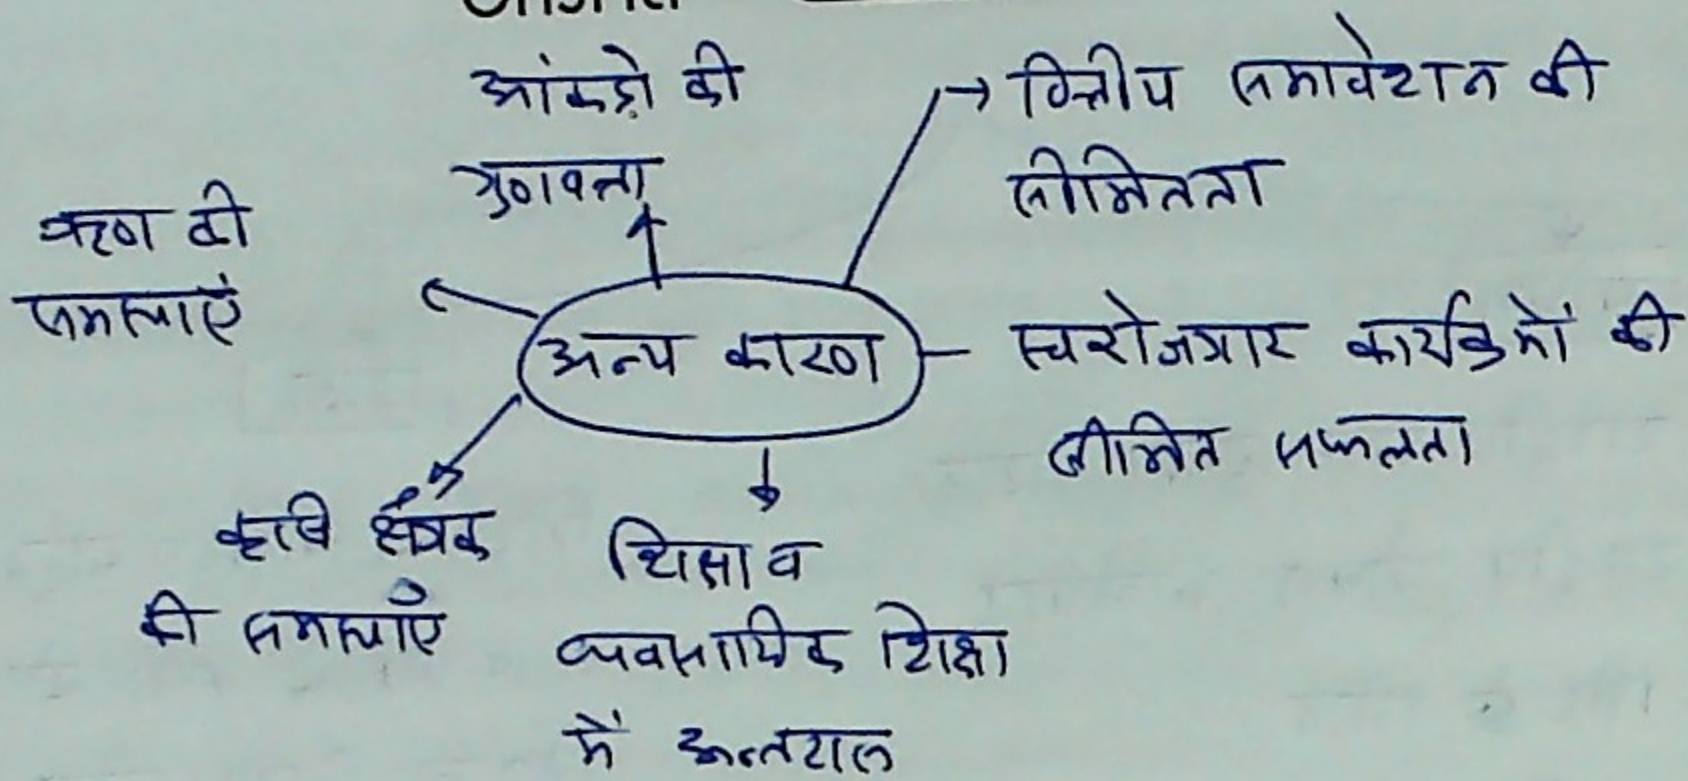 आंकड़ो की
गुणवत्ता
वित्तीय समावेशन की
सीमितता
ऋण की
समस्याएं
अन्य कारण
स्वरोजगार कार्यक्रमों की
सीमित सफलता
कृषि क्षेत्रक
की समस्याएँ
शिक्षा व
व्यवसायिक शिक्षा
में अन्तराल